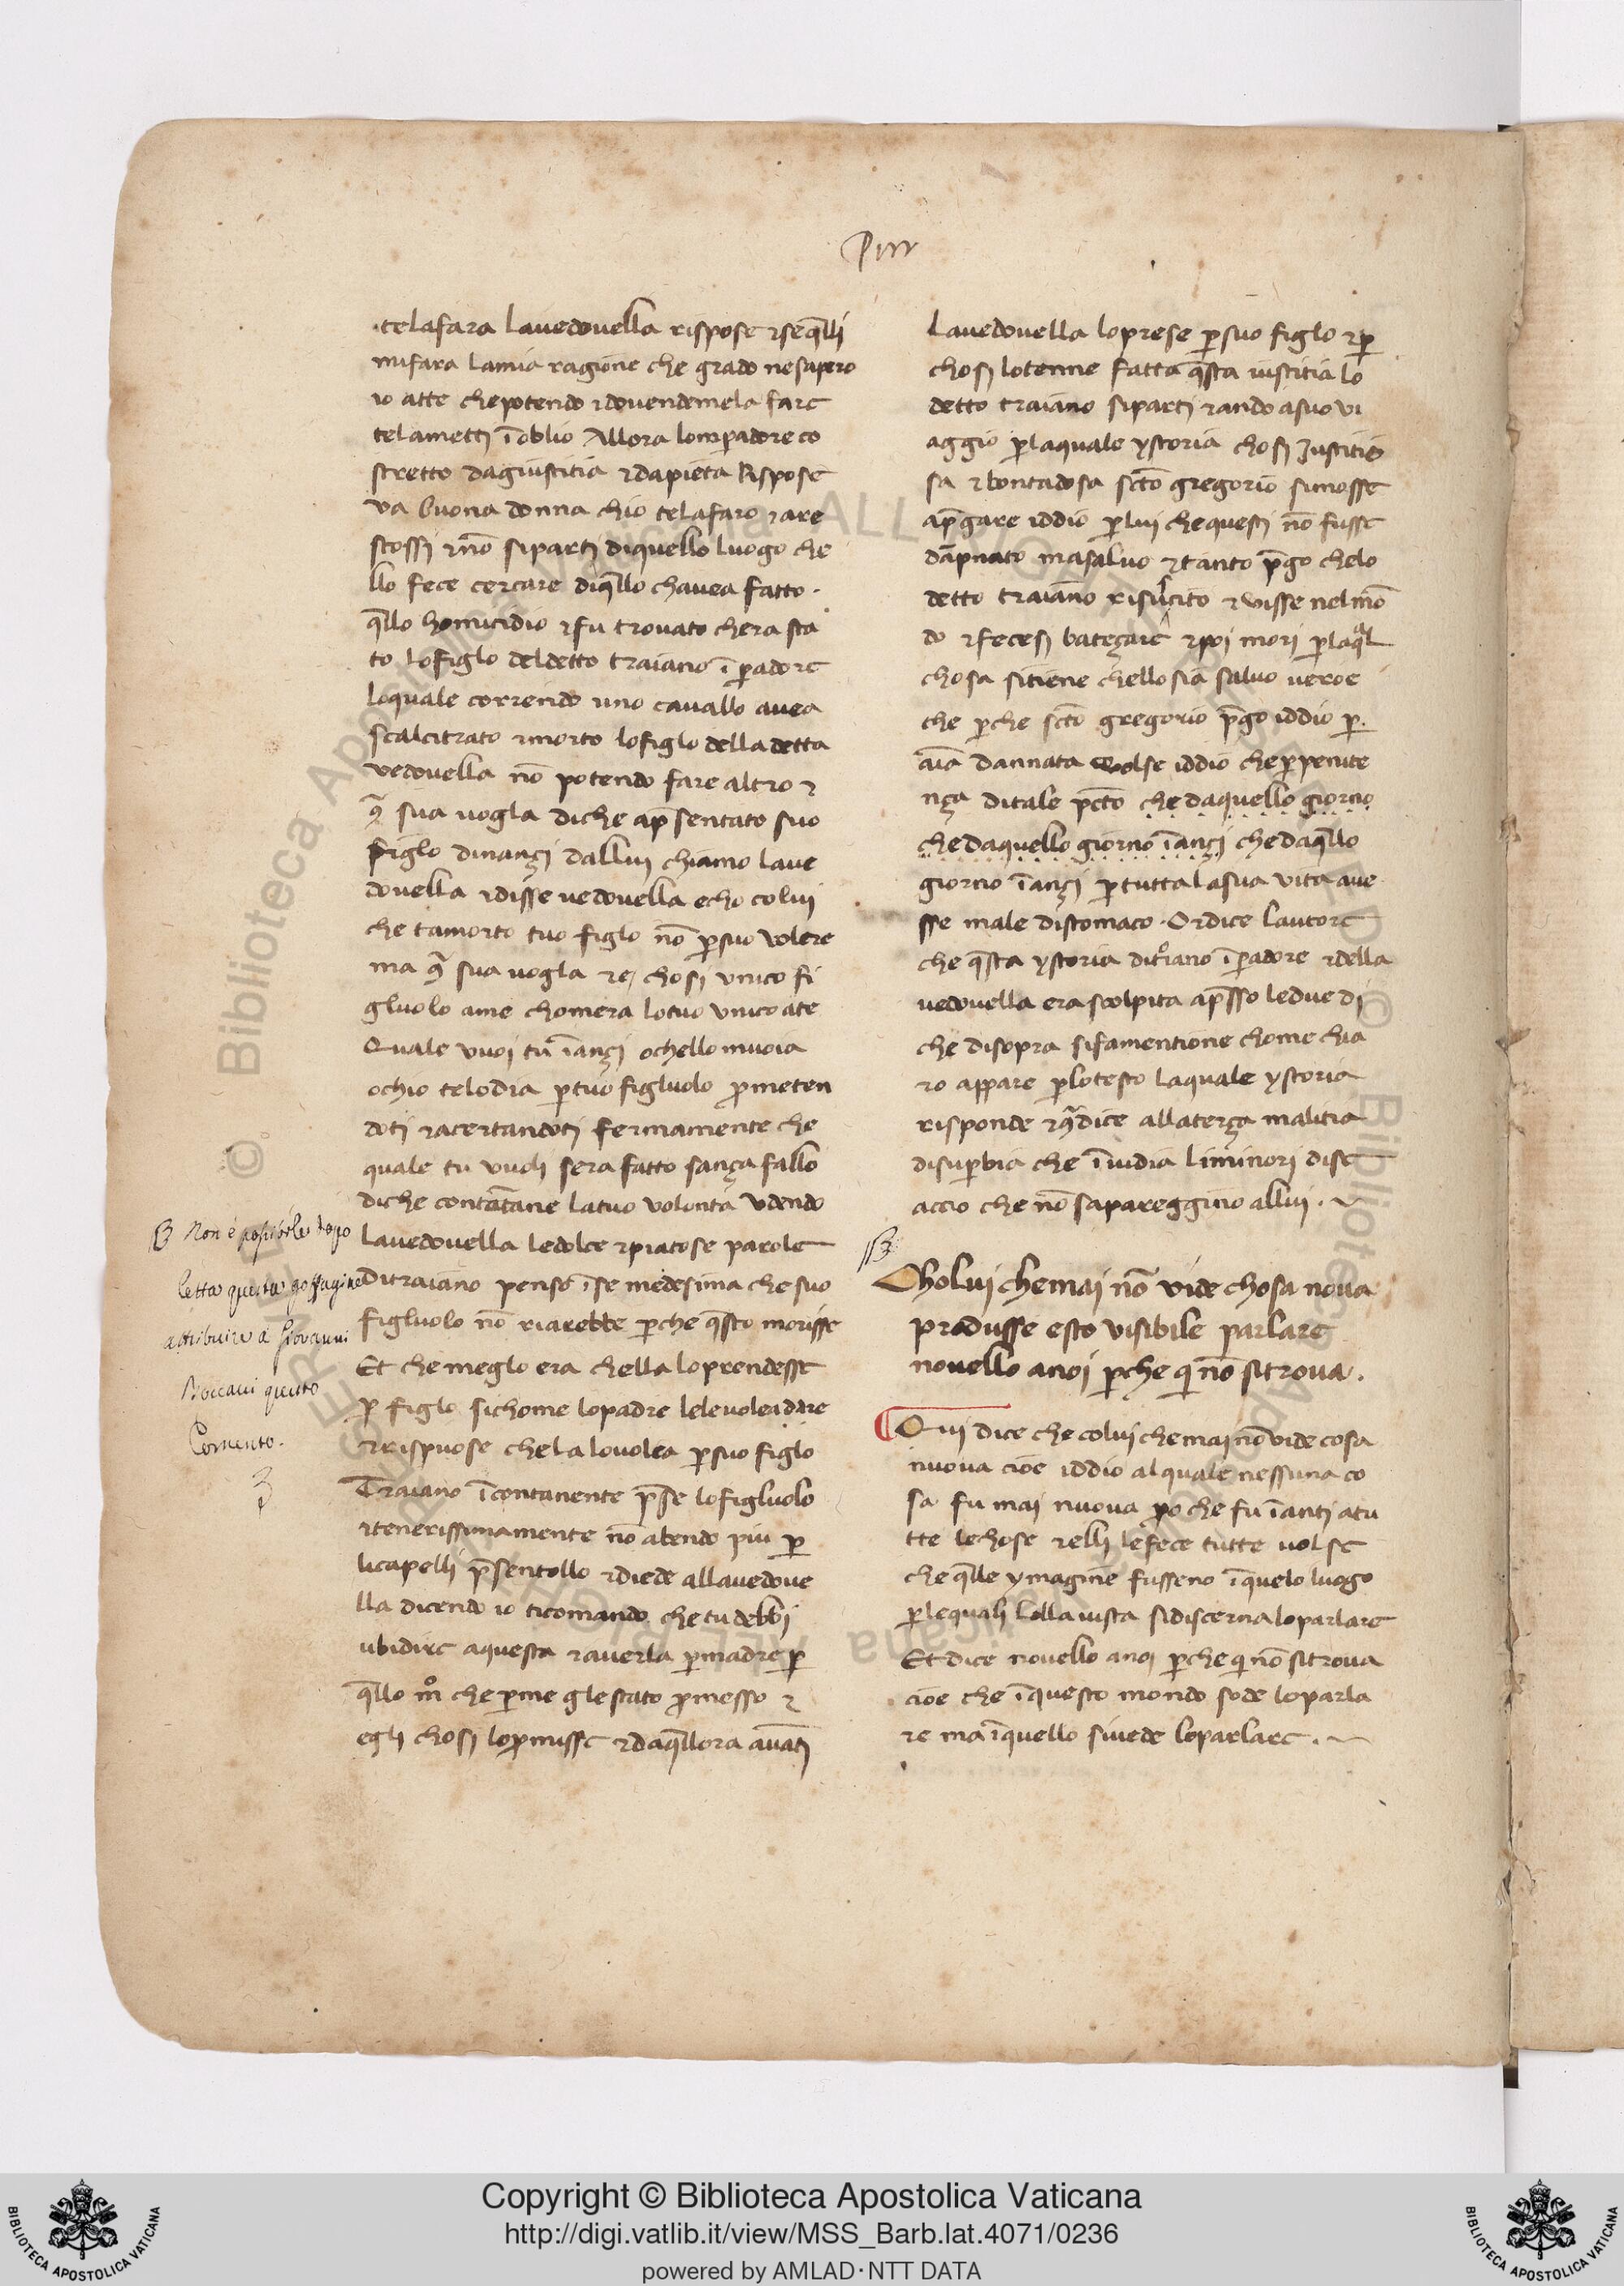 Pur
telafara lavedovella rispose ⁊seq̄lli
mifara lamia ragione che grado nesapero
io atte chepotendo ⁊dovendomela fare
telametti ī oblio Allora lomꝑadore co
stretto dagiustitia ⁊dapieta Rispose
va buona donna chio telafaro ⁊are
stossi ⁊nō siparti diquello luogo che
llo fece cercare diq̄llo chavea fatto.
q̄llo homicidio ⁊fu trovato chera sta
to lofiglo deldetto traiano īꝑadore
loquale correndo uno cavallo avea
scalcitrato ⁊morto lofiglo della detta
vedovella nō potendo fare altro ⁊
sua vogla diche ap̄sentato suo
figlo dinançi dallui chiamo lave
dovella ⁊disse vedovella echo colui
che tamorto tuo figlo nō ꝑsuo volere
ma sua vogla ⁊e chosi unico fi
gluolo ame chomera lotuo unico ate
Quale vuoi tu īançi ochello muoia
ochio telodia ꝑtuo figluolo ꝓmeten
doti ⁊acertandoti fermamente che
quale tu vuoli sera fatto sança fallo
diche contātane latuo volonta Udendo
lavedovella ledolce ⁊piatose parole
Ditraiano penso īse medesima che suo
figluolo nō riarebbe ꝑche q̄sto morisse
Et che meglo era chella loprendesse
ꝑ figlo sichome lopadre lelevolea dare
⁊rispuose chela lovolea ꝑsuo figlo
Traiano īcontanente p̄se lofigluolo
⁊tenerissimamente nō abendo piu ꝑ
licapelli p̄sentollo ⁊diede allavedove
lla dicendo io ticomando che tu debbi
ubidire aquesta ⁊averla ꝑmadre ꝑ
q̄llo mo che ꝑme glestato ꝓmesso ⁊
egli chosi loꝓmisse ⁊daq̄llora avāti
B Non è possibile dopo
letta questa goffagine
attribuire a Giovanni
Boccacci questo
Comento.
Lavedovella loprese ꝑsuo figlo ⁊ꝑ
chosi lotenne fatta q̄sta iustitia lo
detto traiano siparti ⁊ando asuo vi
aggio ꝑlaquale ystoria chosi Justitio
sa ⁊bontadosa sc̄to gregorio simosse
ap̄gare iddio ꝑlui chequesti nō fusse
dāpnato masalvo ⁊tanto p̄go chelo
detto traiano risuscito ⁊visse nelmō
do ⁊fecesi bateçare ⁊poi mori ꝑlaqal
chosa sitiene chello sia salvo veroe
che ꝑche sc̄to gregorio p̄go iddio ꝑ.
āia dannata volse iddio che ꝑpenite
nça ditale pc̄to che daquello giorno
che daquello giorno īançi che daq̄llo
giorno īançi ꝑtutta lasua vita ave
sse male distomaco. Ordice lautore
che q̄sta ystoria ditrāiano īꝑadore ⁊della
vedovella era scolpita ap̄sso ledue di
che disopra sifamentione chome chia
ro appare ꝑlotesto laquale ystoria
risponde ⁊ꝯ̄dice allaterça malitia
disuꝑbia che īvidia liminori dise
accio che nō sapareggino allui.
B
Cholui chemai nō vide chosa nova
produsse esto visibile parlare
novello anoi ꝑche qi nō sitrova.
Qui dice che colui chemai nō vide cosa
nuova cioe iddio alquale nessuna co
sa fu mai nuova ꝑo che fu īanti atu
tte lechose ⁊elli lefece tutte volse
che q̄lle ymagine fusseno īquelo luogo
ꝑlequali lolla vista sidiscerna loparlare
Et dice novello anoi ꝑche qi nō sitrova
cioe che īquesto mondo sode loparla
re ma īquello sivede loparlare.
Copyright © Biblioteca Apostolica Vaticana
http://digi.vatlib.it/view/MSS_Barb.lat.4071/0236
powered by AMLAD·NTT DATA
BIBLIOTECA APOSTOLICA VATICANA
BIBLIOTECA APOSTOLICA VATICANA